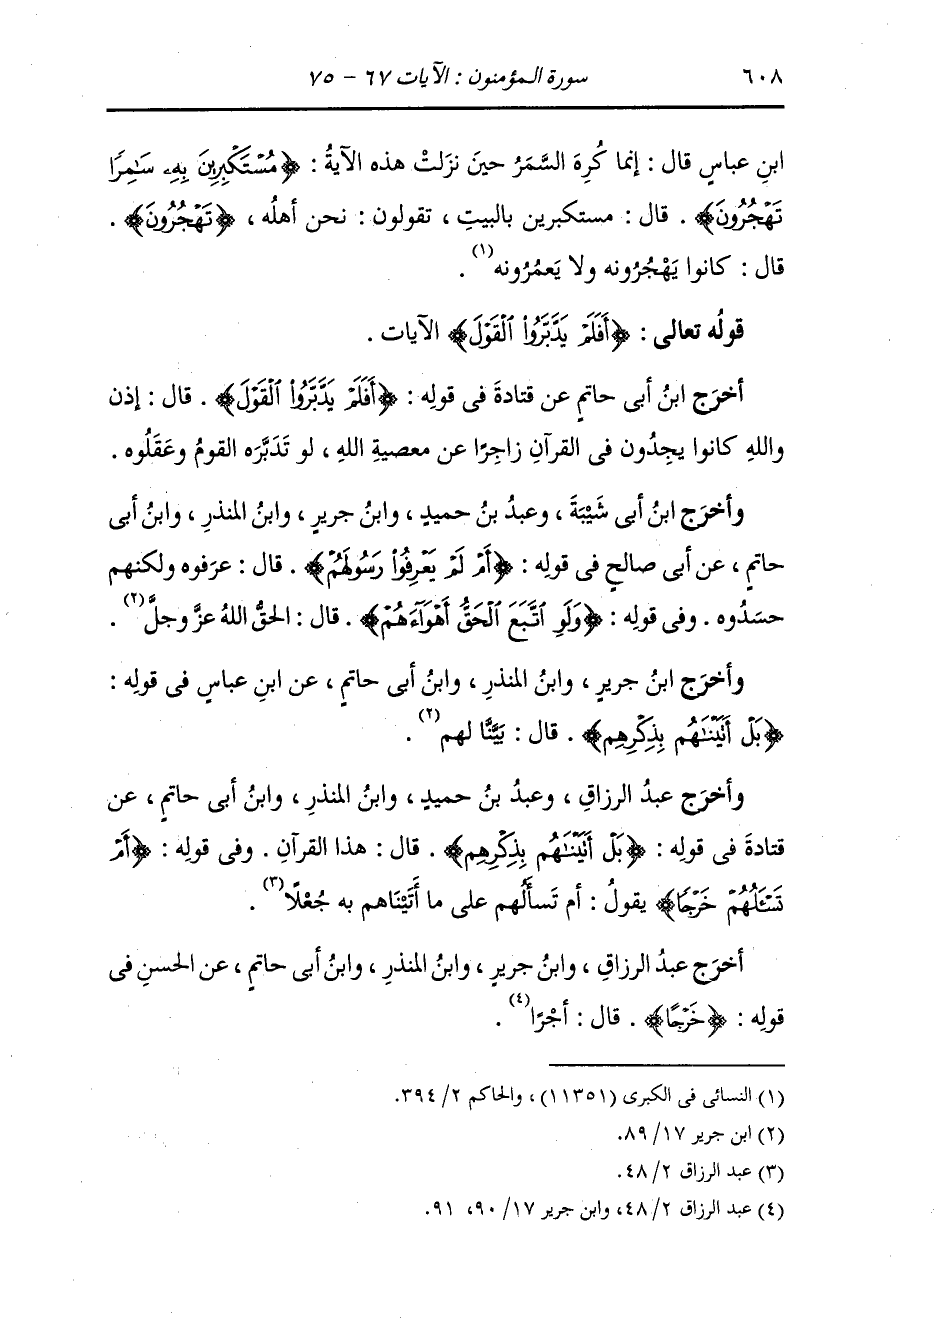 ٦٠٨ سورة المؤمنون : الآيات ٦٧ - ٧٥
ابنِ عباسٍ قال : إنما كُرِهَ السَّمَرُ حينَ نزَلتْ هذه الآيةُ : ﴿مُسْتَكْبِرِينَ بِهِۦ سَٰمِرًا
تَهْجُرُونَ﴾ . قال : مستكبرين بالبيتِ ، تقولون : نحن أهلُه ، ﴿تَهْجُرُونَ﴾ .
قال : كانوا يَهْجُرُونه ولا يَعمُرُونه(١) .
قولُه تعالى : ﴿أَفَلَمْ يَدَّبَّرُوا۟ ٱلْقَوْلَ﴾ الآيات .
أخرَج ابنُ أبى حاتمٍ عن قتادةَ فى قولِه : ﴿أَفَلَمْ يَدَّبَّرُوا۟ ٱلْقَوْلَ﴾ . قال : إذن
واللهِ كانوا يجِدُون فى القرآنِ زاجِرًا عن معصيةِ اللهِ ، لو تَدَبَّرَه القومُ وعَقَلُوه .
وأخرَج ابنُ أبى شَيْبَةَ ، وعبدُ بنُ حميدٍ ، وابنُ جريرٍ ، وابنُ المنذرِ ، وابنُ أبى
حاتمٍ ، عن أبى صالحٍ فى قولِه : ﴿أَمْ لَمْ يَعْرِفُوا۟ رَسُولَهُمْ﴾ . قال : عرَفوه ولكنهم
حسَدُوه . وفى قولِه : ﴿وَلَوِ ٱتَّبَعَ ٱلْحَقُّ أَهْوَآءَهُمْ﴾ . قال : الحقُّ اللهُ عزَّ وجلَّ(٢) .
وأخرَج ابنُ جريرٍ ، وابنُ المنذرِ ، وابنُ أبى حاتمٍ ، عن ابنِ عباسٍ فى قولِه :
﴿بَلْ أَتَيْنَٰهُم بِذِكْرِهِم﴾ . قال : بَيَّنَّا لهم(٢) .
وأخرَج عبدُ الرزاقِ ، وعبدُ بنُ حميدٍ ، وابنُ المنذرِ ، وابنُ أبى حاتمٍ ، عن
قتادةَ فى قولِه : ﴿بَلْ أَتَيْنَٰهُم بِذِكْرِهِم﴾ . قال : هذا القرآنِ . وفى قولِه : ﴿أَمْ
تَسْـَٔلُهُمْ خَرْجًا﴾ يقولُ : أم تَسألُهم على ما أَتَيْنَاهم به جُعْلًا(٣) .
أخرَج عبدُ الرزاقِ ، وابنُ جريرٍ ، وابنُ المنذرِ ، وابنُ أبى حاتمٍ ، عن الحسنِ فى
قولِه : ﴿خَرْجًا﴾ . قال : أجْرًا(٤) .
(١) النسائى فى الكبرى (١١٣٥١) ، والحاكم ٢/ ٣٩٤.
(٢) ابن جرير ١٧/ ٨٩.
(٣) عبد الرزاق ٢/ ٤٨.
(٤) عبد الرزاق ٢/ ٤٨، وابن جرير ١٧/ ٩٠، ٩١.